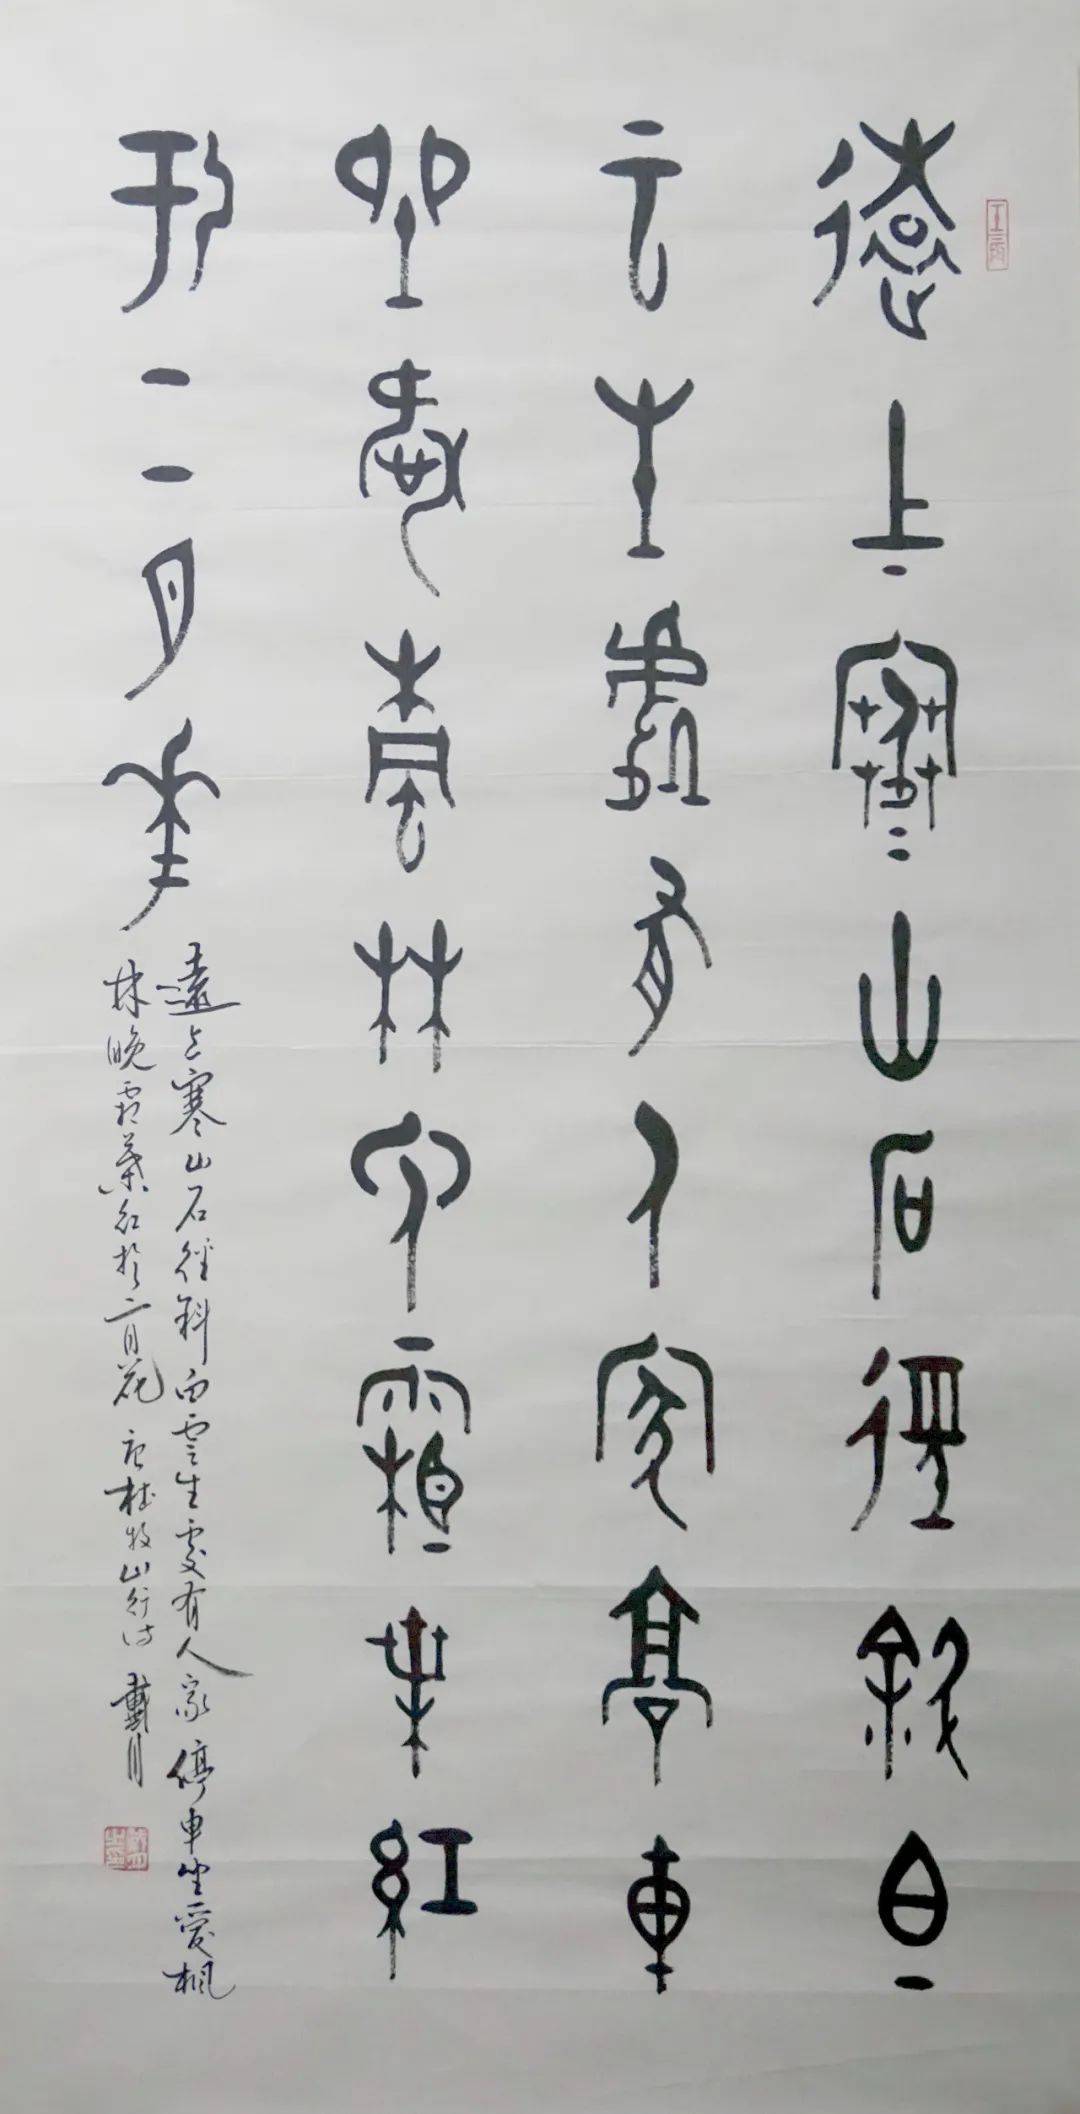 遠上寒山石徑斜白
云生處有人家停車
坐愛楓林夕霜葉紅
於二月華
遠上寒山石径斜白雲生處有人家停車坐愛楓
林晚霜葉红於二月花 唐杜牧山行诗 戴月